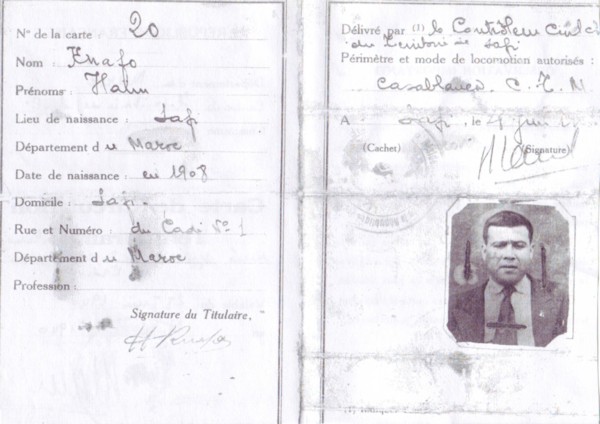 N° de la carte 20
Nom : Knafo
Prénoms : Haïm
Lieu de naissance : Safi
Département du Maroc
Date de naissance : en 1908
Domicile : Safi.
Rue et Numéro : du Cadi N° 1
Département du Maroc
Profession :
Signature du Titulaire,
Délivré par (1) le Contrôleur Civil
du Territoire de Safi
Périmètre et mode de locomotion autorisés :
Casablanca C. T. M
A Safi, le 4
(Cachet) (Signature)